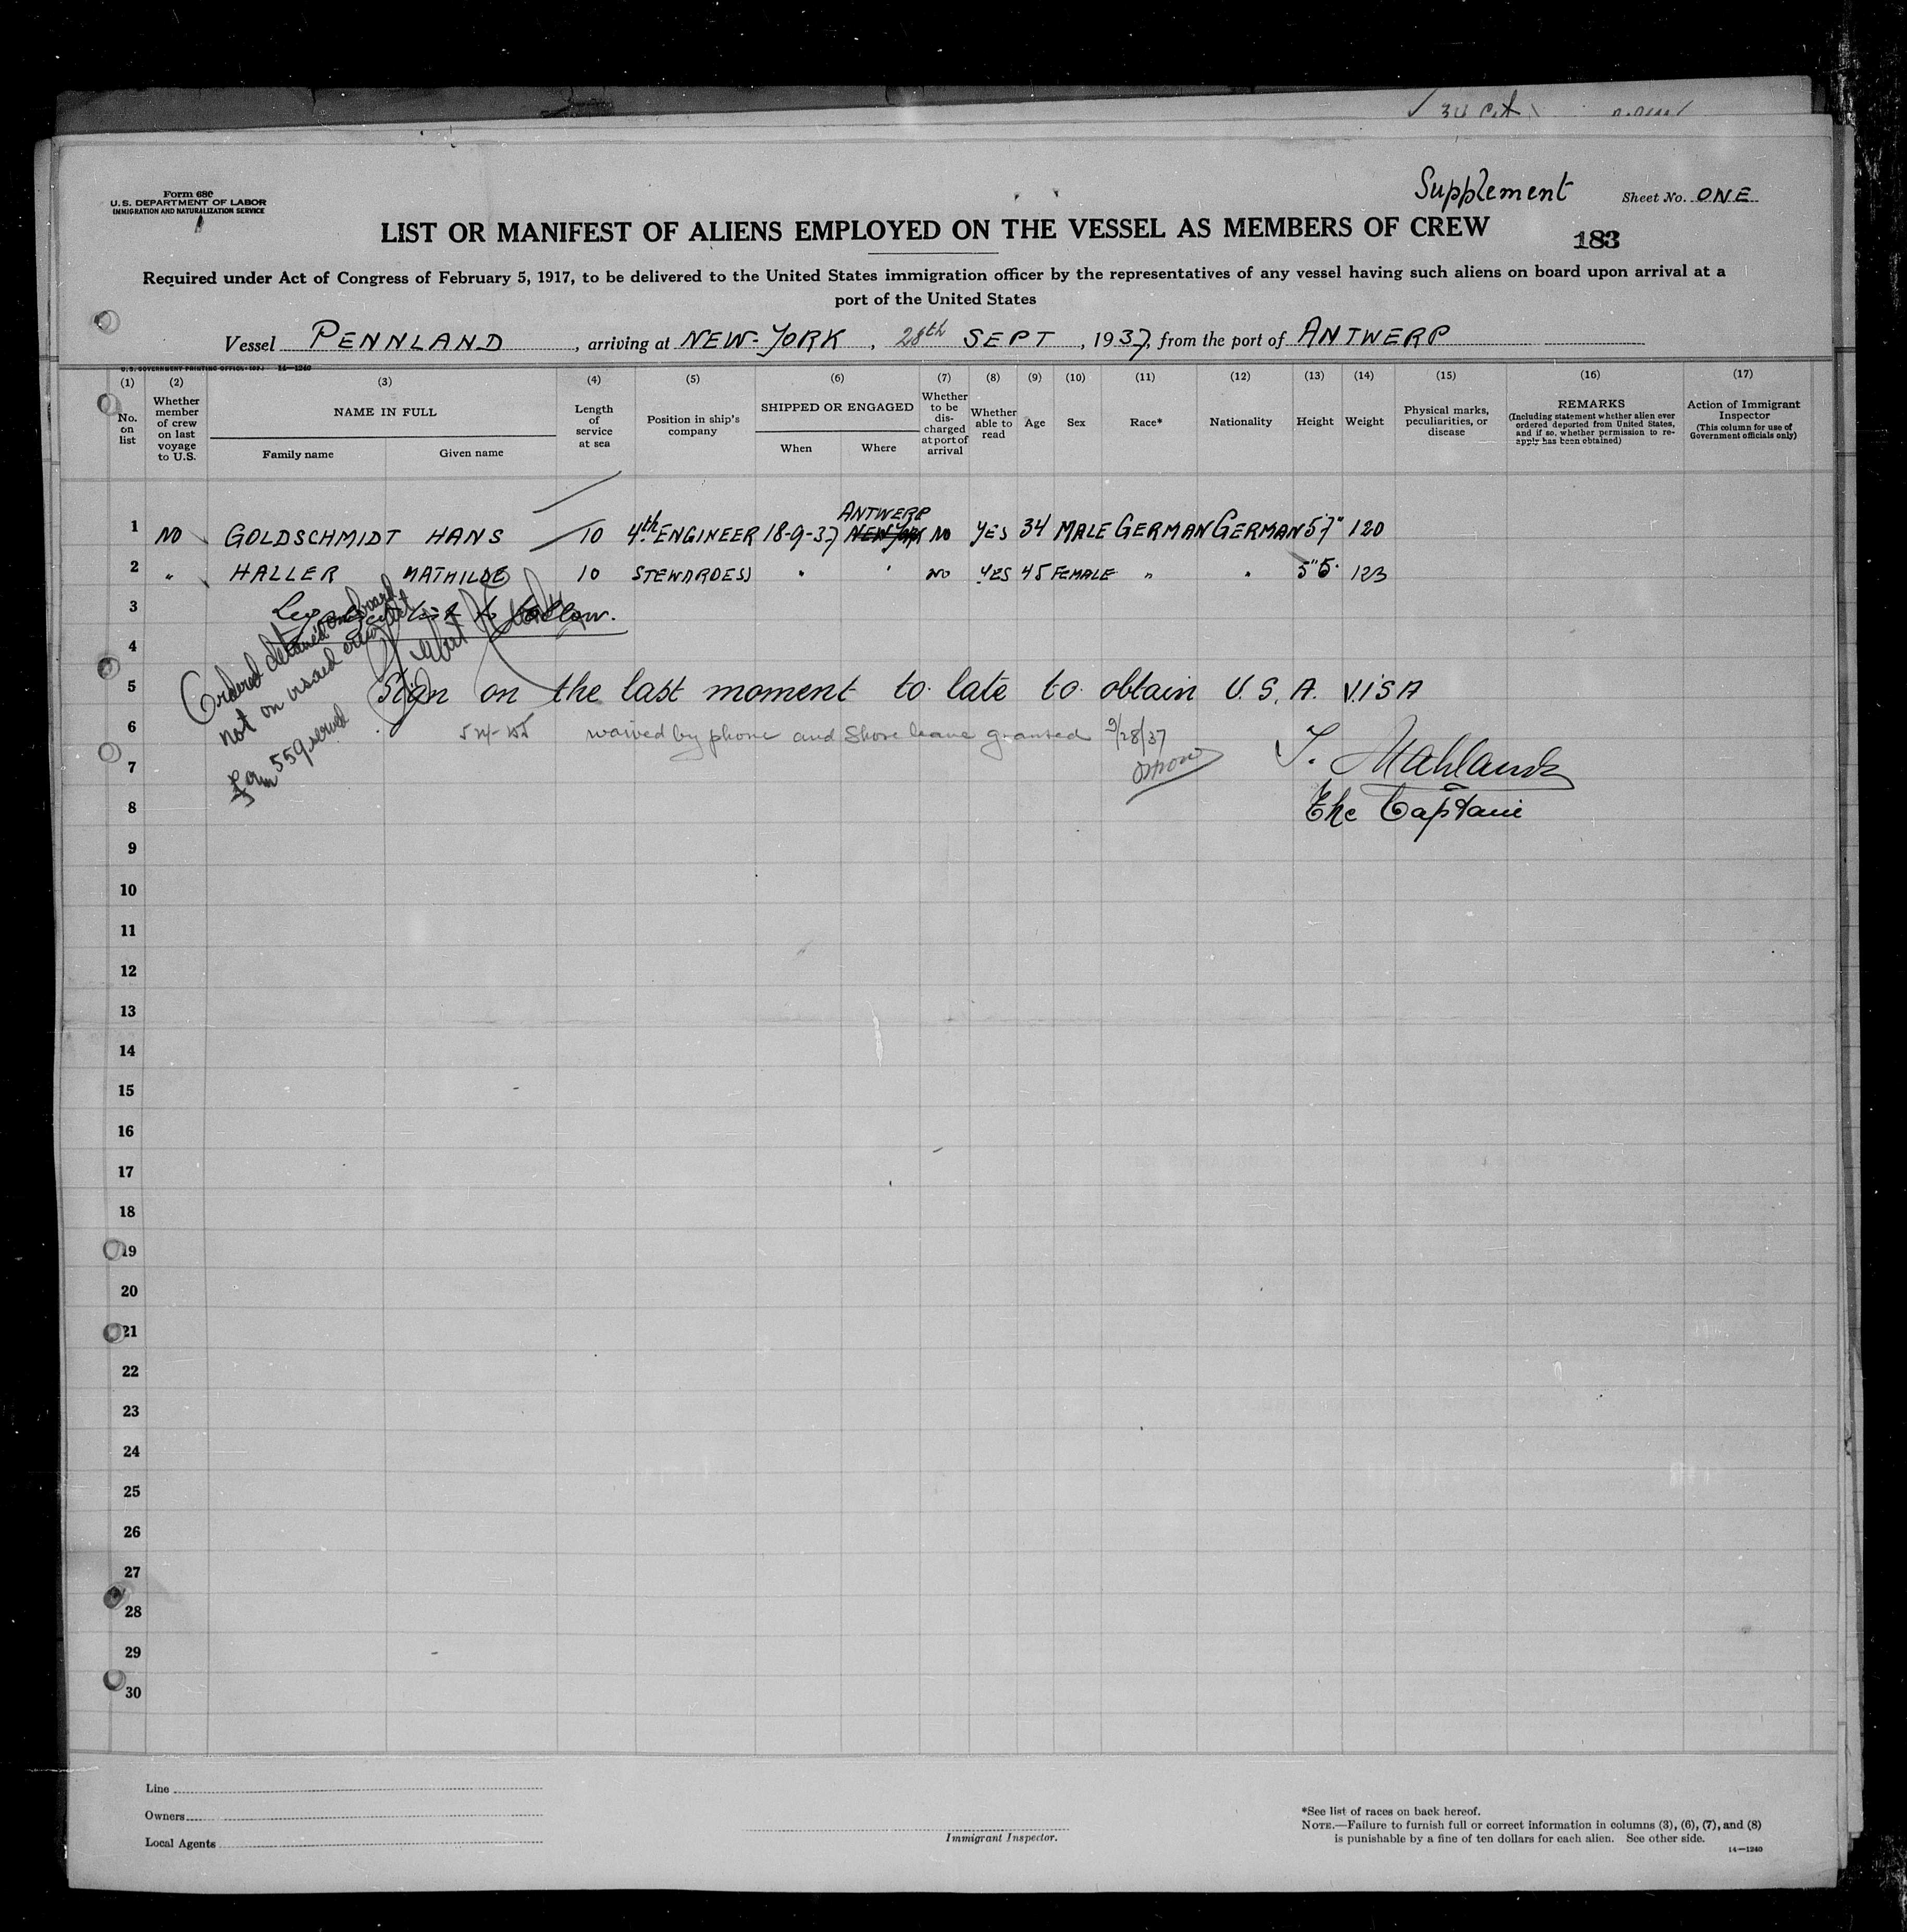 34
Supplement
Sheet No. ONE
Form 680
U.S. DEPARTMENT OF LABOR
IMMIGRATION AND NATURALIZATION SERVICE
LIST OR MANIFEST OF ALIENS EMPLOYED ON THE VESSEL AS MEMBERS OF CREW
183
Required under Act of Congress of February 5, 1917, to be delivered to the United States immigration officer by the representatives of any vessel having such aliens on board upon arrival at a
port of the United States
Vessel PENNLAND, arriving at NEW-YORK, 28th SEPT, 1937, from the port of ANTWERP
U.S. GOVERNMENT PRINTING OFFICE 14—1240
(1) (2) (3) (4) (5) (6) (7) (8) (9) (10) (11) (12) (13) (14) (15) (16) (17)
No. on list
Whether member of crew on last voyage to U.S.
NAME IN FULL
Family name Given name
Length of service at sea
Position in ship's company
SHIPPED OR ENGAGED
When Where
Whether to be discharged at port of arrival
Whether able to read
Age
Sex
Race*
Nationality
Height
Weight
Physical marks, peculiarities, or disease
REMARKS
(Including statement whether alien ever ordered deported from United States, and if so, whether permission to reapply has been obtained)
Action of Immigrant Inspector
(This column for use of Government officials only)
ANTWERP
1 NO GOLDSCHMIDT HANS 10 4th ENGINEER 18-9-37 NEW YORK NO YES 34 MALE GERMAN GERMAN 5'7" 120
2 " HALLER MATHILDE 10 STEWARDESS " " NO YES 45 FEMALE " " 5"5' 123
3 list to follow.
4
Ordered detained on board
not on visaed crew list
Form 559 served
5 Sign on the last moment to late to obtain U.S.A. VISA
6 waived by phone and Shore leave granted 9/28/37
7
The Captain
8
9
10
11
12
13
14
15
16
17
18
19
20
21
22
23
24
25
26
27
28
29
30
Line
Owners
Local Agents
Immigrant Inspector.
*See list of races on back hereof.
NOTE.—Failure to furnish full or correct information in columns (3), (6), (7), and (8)
is punishable by a fine of ten dollars for each alien. See other side.
14—1240